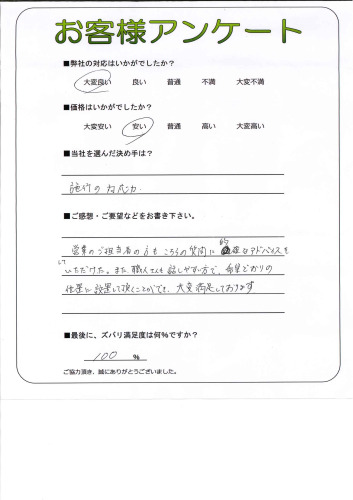 お客様アンケート
■弊社の対応はいかがでしたか？
大変良い 良い 普通 不満 大変不満
■価格はいかがでしたか？
大変安い 安い 普通 高い 大変高い
■当社を選んだ決め手は？
施行の対応力
■ご感想・ご要望などをお書き下さい。
営業のご担当者の方もこちらの質問に的確なアドバイスを
して
いただけた。また、職人さんも話しやすい方で、希望どおりの
位置に設置して頂くことができ、大変満足しております
■最後に、ズバリ満足度は何％ですか？
100 ％
ご協力頂き、誠にありがとうございました。